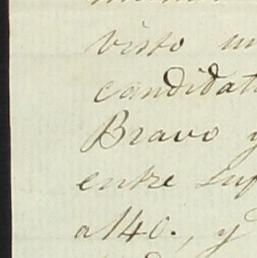 visto
candidat
Bravo y
entre
a 140., y